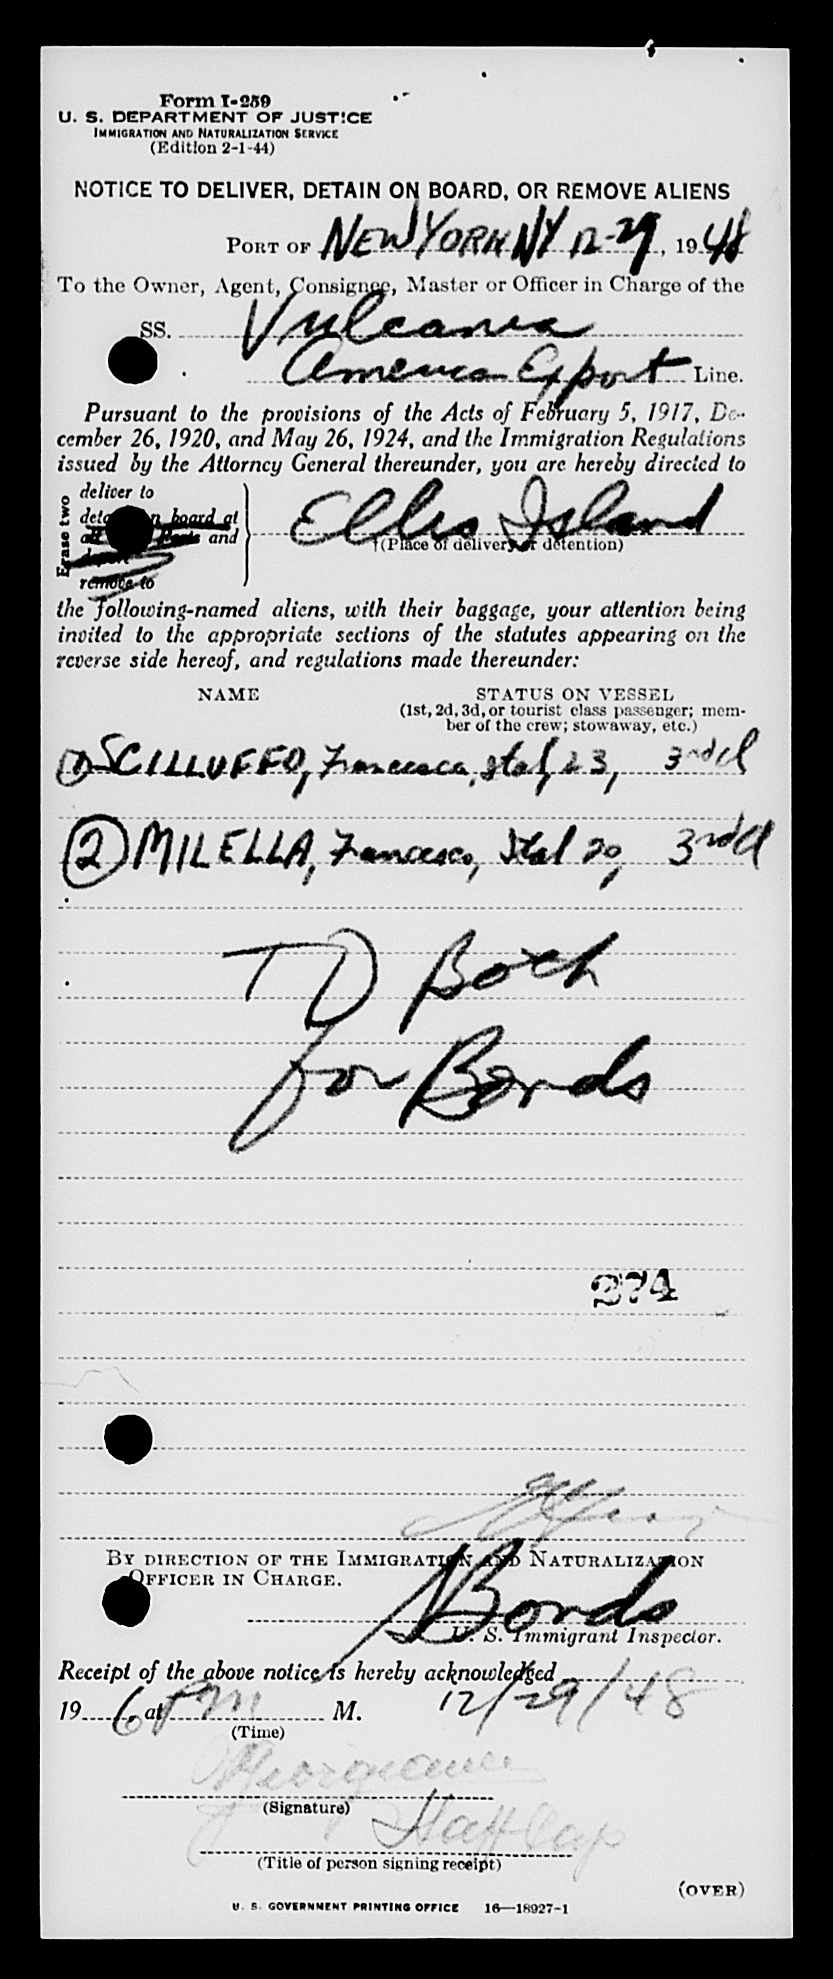 Form I-259
U. S. DEPARTMENT OF JUSTICE
IMMIGRATION AND NATURALIZATION SERVICE
(Edition 2-1-44)
NOTICE TO DELIVER, DETAIN ON BOARD, OR REMOVE ALIENS
PORT OF NEW YORK NY 12-29, 1948
To the Owner, Agent, Consignee, Master or Officer in Charge of the
SS. Vulcania
American Export Line.
Pursuant to the provisions of the Acts of February 5, 1917, De-
cember 26, 1920, and May 26, 1924, and the Immigration Regulations
issued by the Attorney General thereunder, you are hereby directed to
Erase two
deliver to
board at
and
remove to
Ellis Island
(Place of delivery or detention)
the following-named aliens, with their baggage, your attention being
invited to the appropriate sections of the statutes appearing on the
reverse side hereof, and regulations made thereunder:
NAME STATUS ON VESSEL
(1st, 2d, 3d, or tourist class passenger; mem-
ber of the crew; stowaway, etc.)
(1) SCILLUFFO, Francesca, Ital, 23, 3rd cl
(2) MILELLA, Francesco, Ital 20, 3rd cl
TD Both
for Bonds
274
BY DIRECTION OF THE IMMIGRATION AND NATURALIZATION
OFFICER IN CHARGE.
Bonds
U. S. Immigrant Inspector.
Receipt of the above notice is hereby acknowledged
19 6, at PM M. 12/29/48
(Time)
(Signature)
Staff Cap
(Title of person signing receipt)
(OVER)
U. S. GOVERNMENT PRINTING OFFICE 16—18927-1